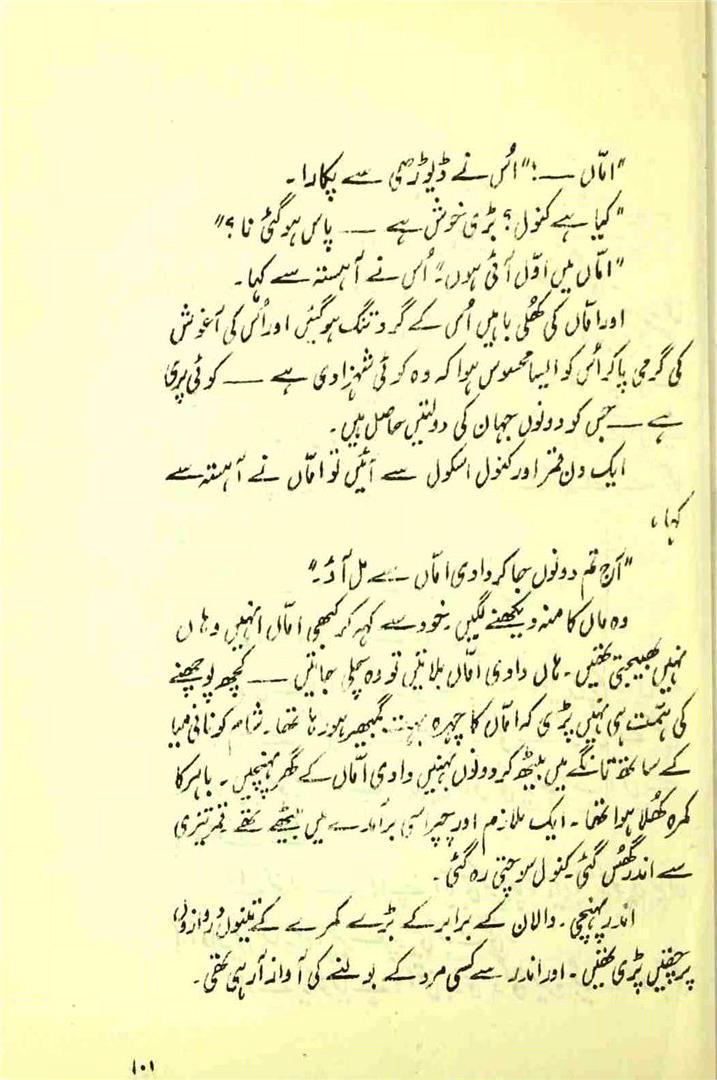 "امّاں —!" اُس نے ڈیوڑھی سے پکارا۔
"کیا ہے کنول؟ بڑی خوش ہے — پاس ہوگئی نا؟"
"امّاں میں اوّل آئی ہوں۔" اُس نے آہستہ سے کہا۔
اور امّاں کی کھُلی باہیں اُس کے گرد تنگ ہوگئیں اور اُس کی آغوش
کی گرمی پاکر اُس کو ایسا محسوس ہوا کہ وہ کوئی شہزادی ہے — کوئی پری
ہے — جس کو دونوں جہان کی دولتیں حاصل ہیں۔
ایک دن قمر اور کنول اسکول سے آئیں تو امّاں نے آہستہ سے
کہا،
"آج تم دونوں جاکر دادی امّاں سے مل آؤ۔"
وہ ماں کا منہ دیکھنے لگیں۔ خود سے کہہ کر کبھی امّاں انہیں وہاں
نہیں بھیجتی تھیں۔ ہاں دادی امّاں بلاتیں تو وہ چلی جاتیں — کچھ پوچھنے
کی ہمّت ہی نہیں پڑی کہ امّاں کا چہرہ بہت گمبھیر ہورہا تھا۔ شام کو نانی میا
کے ساتھ تانگے میں بیٹھ کر دونوں بہنیں دادی امّاں کے گھر پہنچیں۔ باہر کا
کمرہ کھُلا ہوا تھا۔ ایک ملازم اور چپراسی برآمدے میں بیٹھے تھے قمر تیزی
سے اندر گھُس گئی۔ کنول سوچتی رہ گئی۔
اندر پہنچی۔ دالان کے برابر کے بڑے کمرے کے تینوں دروازوں
پر چقیں پڑی تھیں۔ اور اندر سے کسی مرد کے بولنے کی آواز آرہی تھی۔
۱۰۱